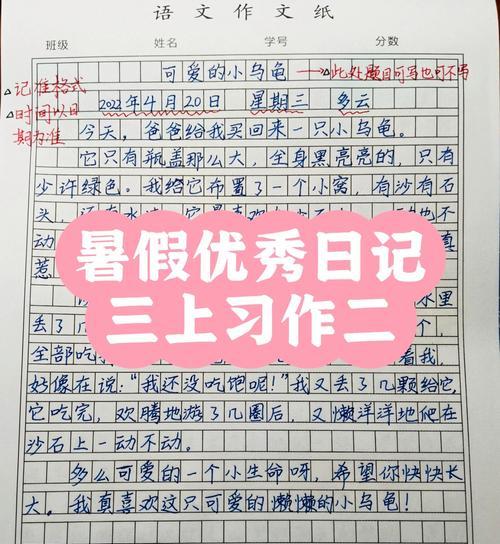 语文作文纸
班级 姓名 学号 分数
可爱的小乌龟 此处题目可写也可不写
记准格式
时间以日
期为准
2022年4月20日 星期三 多云
今天,爸爸给我买回来一只小乌龟。
它只有瓶盖那么大,全身黑亮亮的,只有
少许绿色。我给它布置了一个小窝,有沙有石
头, 也不
动 真
惹
暑假优秀日记
三上习作二
水里
丢了几
全部吃 看我,
好像在说:“我还没吃饱呢!”我又丢了几颗给它,
它吃完,欢腾地游了几圈后,又懒洋洋地爬在
沙石上一动不动。
多么可爱的一个小生命呀,希望你快快长
大。我真喜欢这只可爱的懒懒的小乌龟!